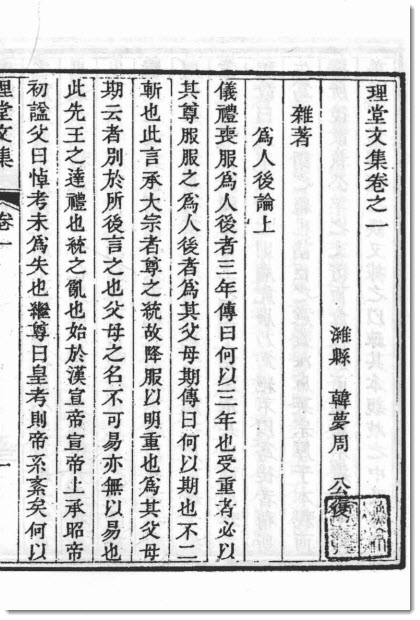 理堂文集卷之一
濰縣　韓夢周　公復
雜著
爲人後論上
儀禮喪服爲人後者三年傳曰何以三年也受重者必以
其尊服服之爲人後者爲其父母期傳曰何以期也不二
斬也此言承大宗者尊之統故降服以明重也爲其父母
期云者別於所後言之也父母之名不可易亦無以易也
此先王之達禮也統之亂也始於漢宣帝宣帝上承昭帝
初諡父曰悼考未爲失也繼尊曰皇考則帝系紊矣何以
理堂文集　卷一　一